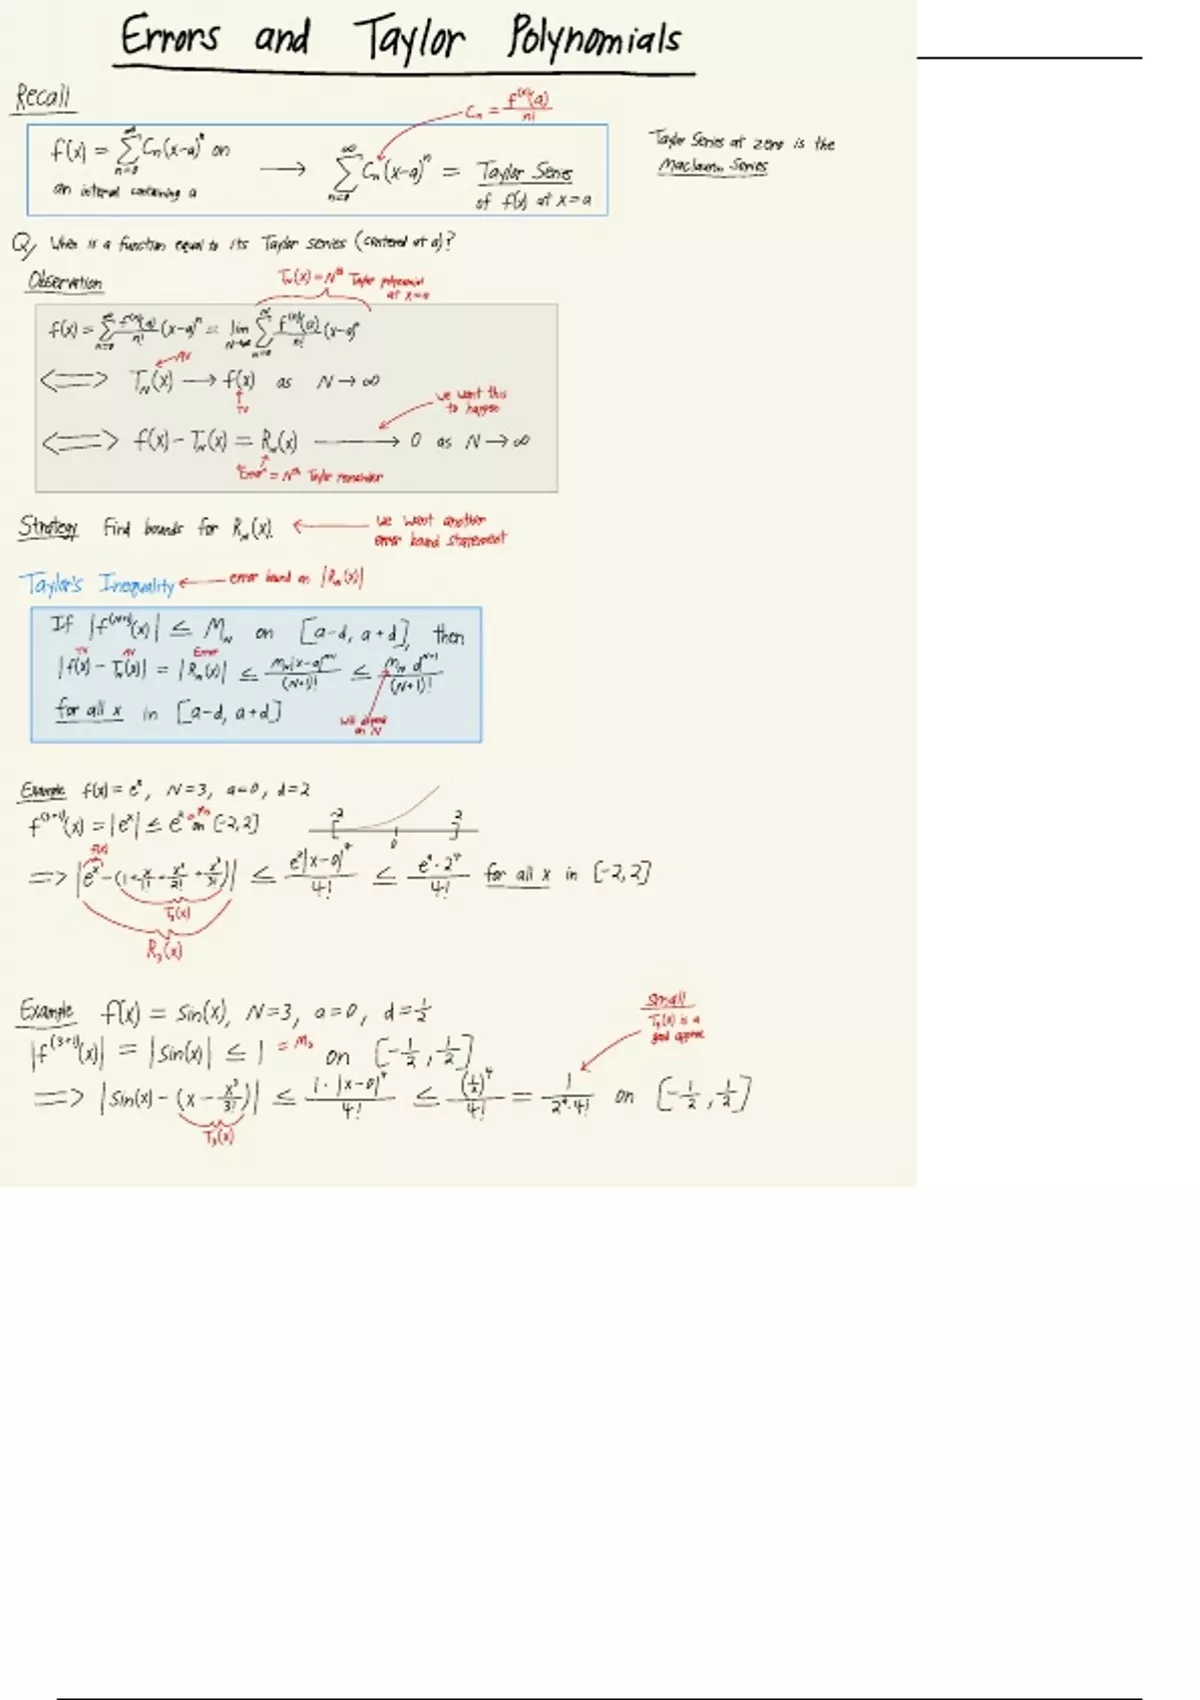 Errors and Taylor Polynomials
Recall
Cₙ = f⁽ⁿ⁾(a)/n!
f(x) = ∑_{n=0}^{∞} Cₙ(x-a)ⁿ on an interval containing a → ∑_{n=0}^{∞} Cₙ(x-a)ⁿ = Taylor Series of f(x) at x=a
Taylor Series at zero is the Maclaurin Series
Q/ When is a function equal to its Taylor series (centered at a)?
Observation
T_N(x) = Nᵗʰ Taylor polynomial at x=a
f(x) = ∑_{n=0}^{∞} f⁽ⁿ⁾(a)/n! (x-a)ⁿ = lim_{N→∞} ∑_{n=0}^{N} f⁽ⁿ⁾(a)/n! (x-a)ⁿ
AV
⟺ T_N(x) → f(x) as N → ∞
TV
we want this to happen
⟺ f(x) - T_N(x) = R_N(x) → 0 as N → ∞
"Error" = Nᵗʰ Taylor remainder
Strategy Find bounds for R_N(x). ← we want another error bound statement
Taylor's Inequality ← error bound on |R_N(x)|
If |f⁽ᴺ⁺¹⁾(x)| ≤ M_N on [a-d, a+d], then
TV AV Error
|f(x) - T_N(x)| = |R_N(x)| ≤ M_N|x-a|ᴺ⁺¹/(N+1)! ≤ M_N dᴺ⁺¹/(N+1)!
for all x in [a-d, a+d]
will depend on N
Example f(x) = eˣ, N=3, a=0, d=2
f⁽³⁺¹⁾(x) = |eˣ| ≤ e² on [-2,2]
-2 0 2
f(x)
⟹ |eˣ - (1 + x/1! + x²/2! + x³/3!)| ≤ e²|x-0|⁴/4! ≤ e²·2⁴/4! for all x in [-2,2]
T₃(x)
R₃(x)
Example f(x) = sin(x), N=3, a=0, d=½
small
T₃(x) is a good approx
|f⁽³⁺¹⁾(x)| = |sin(x)| ≤ 1 = M₃ on [-½, ½]
⟹ |sin(x) - (x - x³/3!)| ≤ 1·|x-0|⁴/4! ≤ (½)⁴/4! = 1/2⁴·4! on [-½, ½]
T₃(x)